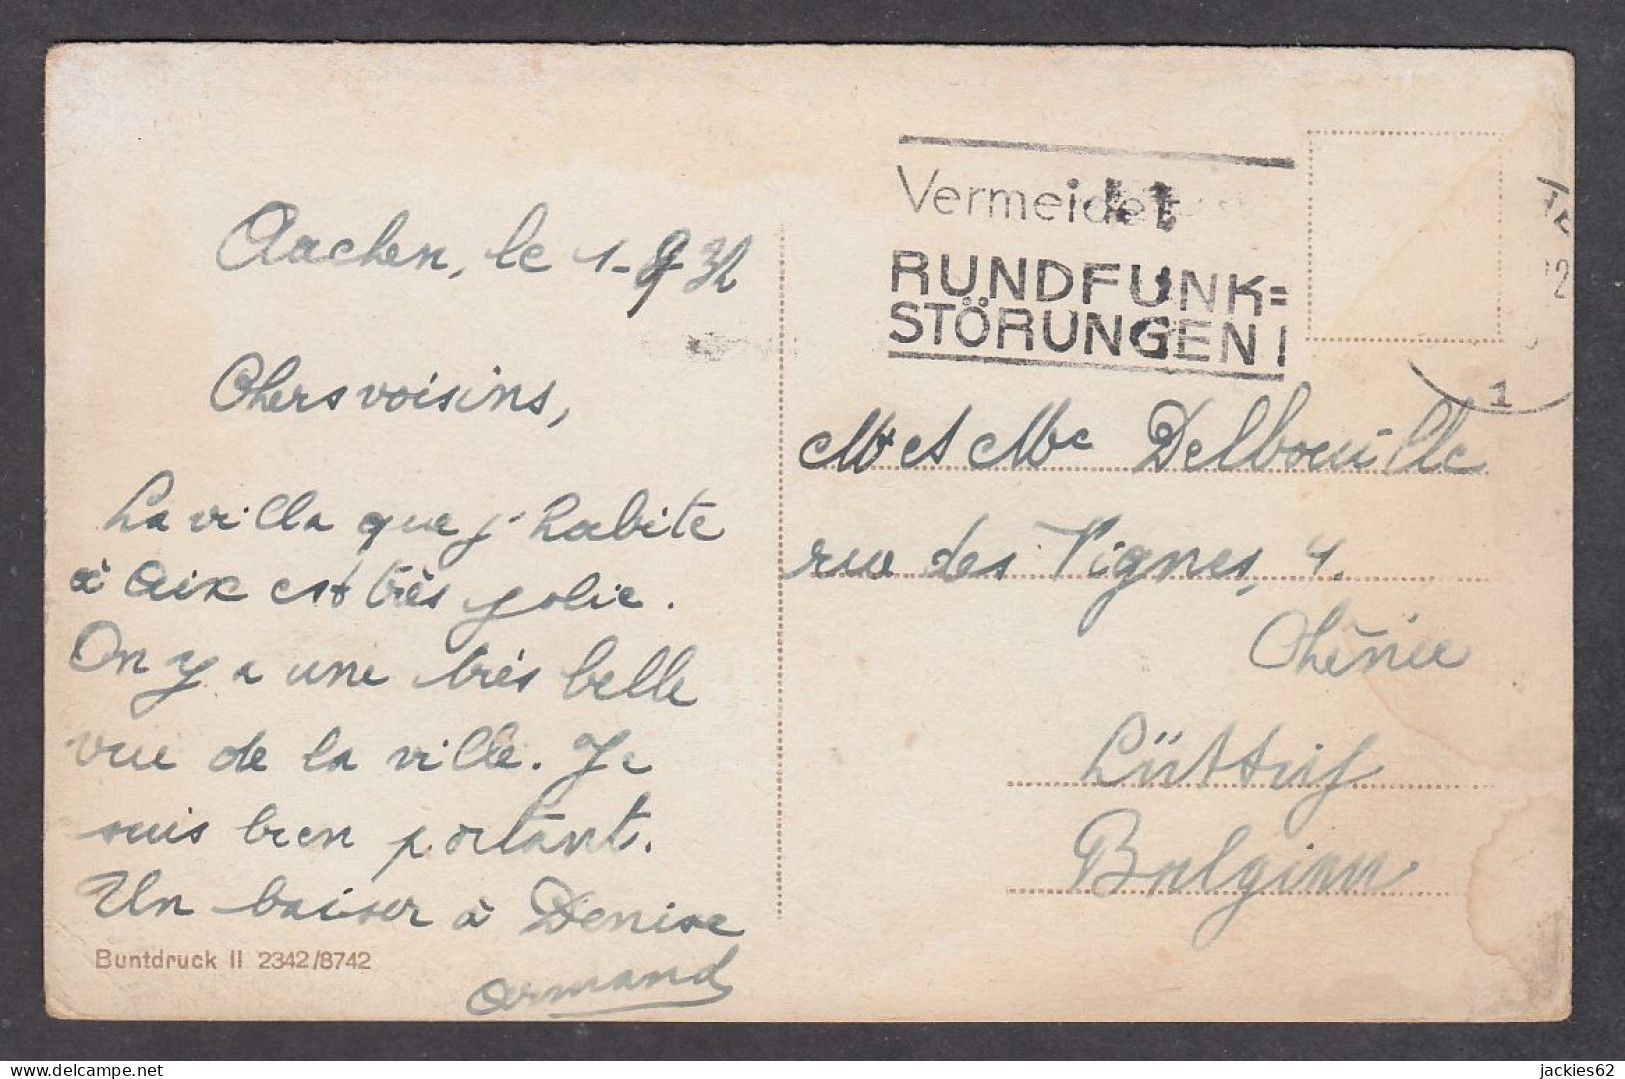 Aachen, le 1-9-32
Chers voisins,
La villa que j'habite
à Aix est très jolie.
On y a une très belle
vue de la ville. Je
suis bien portant.
Un baiser à Denise
Armand
Buntdruck II 2342/8742
Vermeidet
RUNDFUNK=
STÖRUNGEN!
1
Mr et Me Delbouille
rue des Vignes, 4.
Chênée
Lüttich
Belgien
jackies62